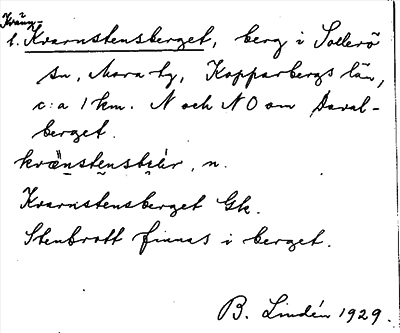 Kvänn-
l. Kvarnstensberget, berg i Sollerö
sn, Mora tg, Kopparbergs län,
c:a 1 km. N och NO om Daral-
berget.
n.
Kvarnstensberget Gk.
Stenbrott finnas i berget.
B. Lindén 1929.